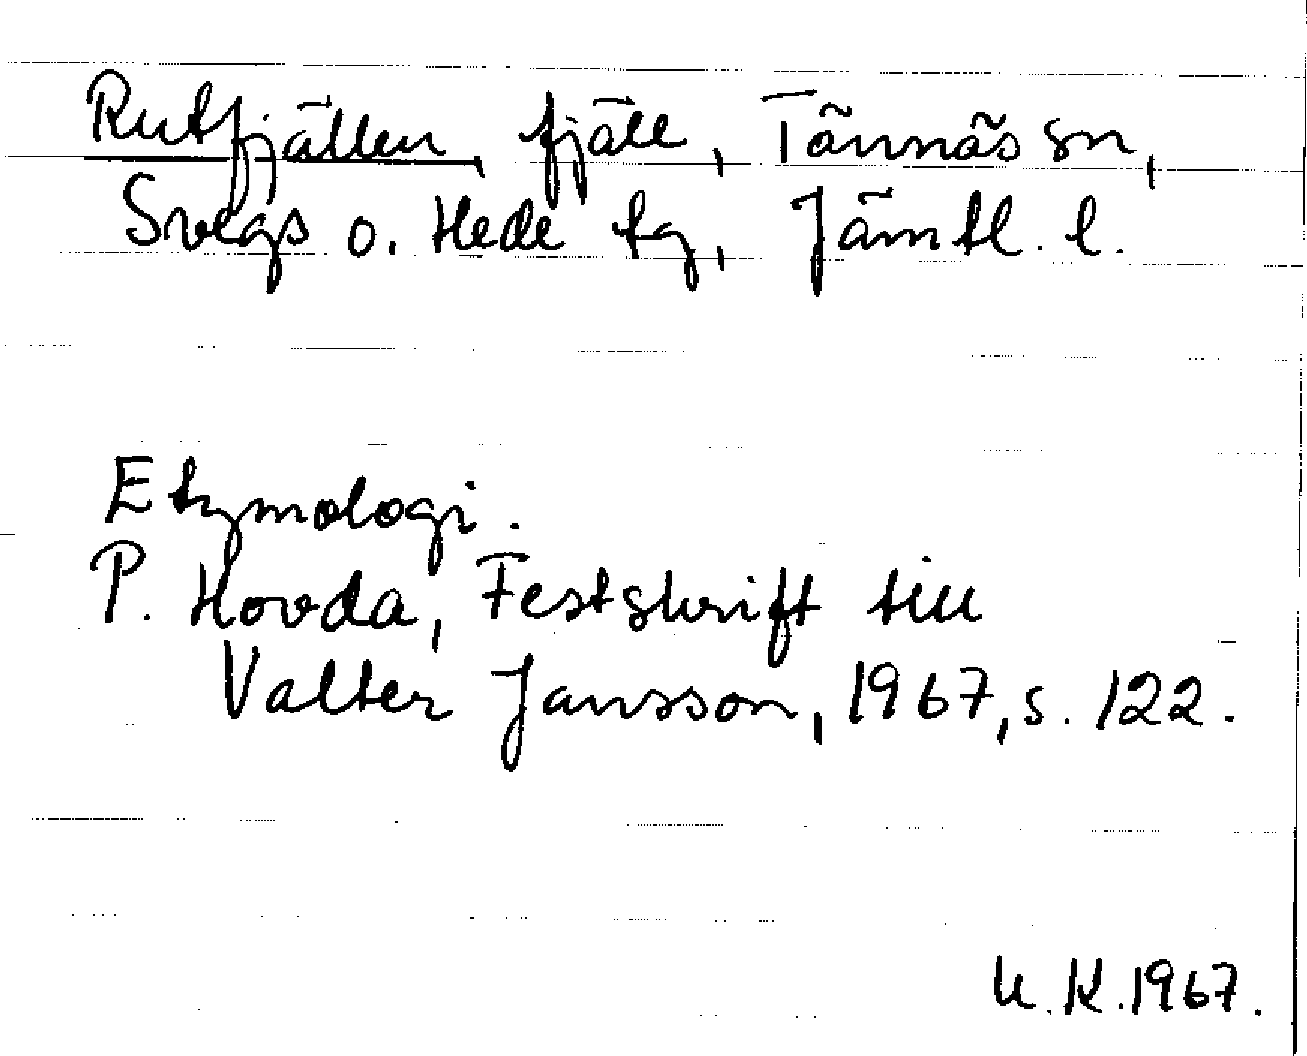 Rutfjällen, fjäll, Tännäs sn,
Svegs o. Hede tg, Jämtl. l.
Etymologi.
P. Hovda, Festskrift till
Valter Jansson, 1967, s. 122.
U. K. 1967.